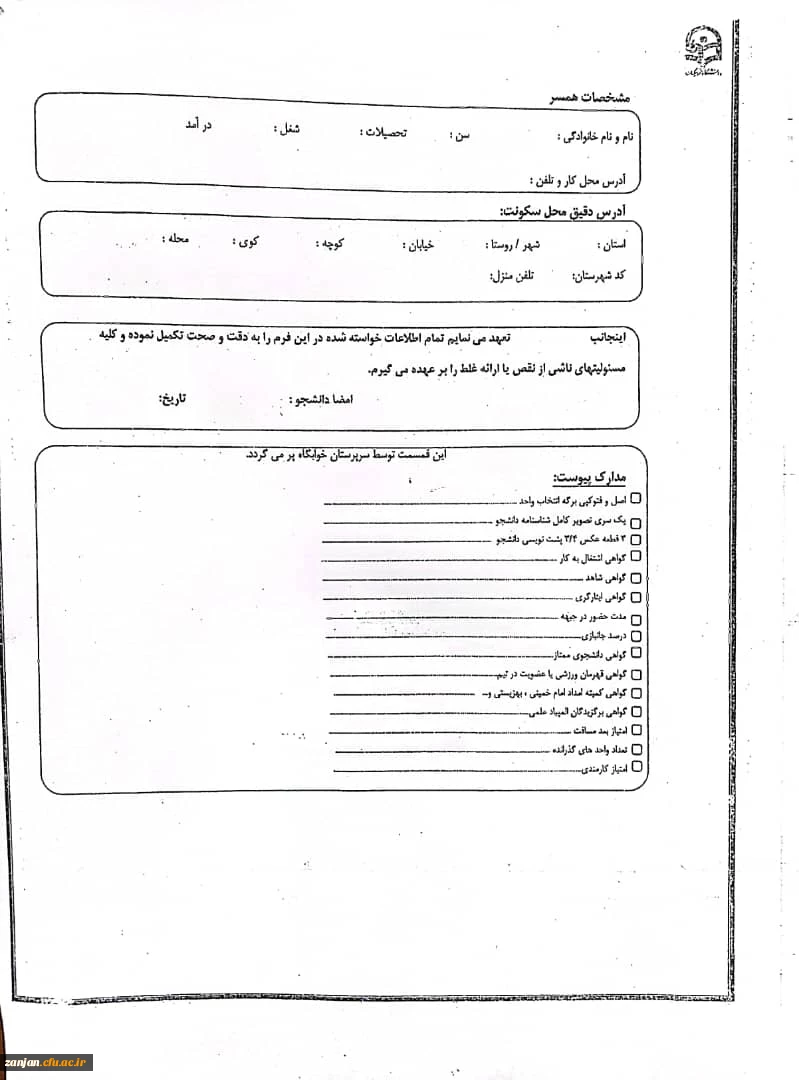 دانشگاه فرهنگیان
مشخصات همسر
نام و نام خانوادگی : سن : تحصیلات : شغل : در آمد
آدرس محل کار و تلفن :
آدرس دقیق محل سکونت:
استان : شهر / روستا : خیابان : کوچه : کوی : محله :
کد شهرستان: تلفن منزل:
اینجانب تعهد می نمایم تمام اطلاعات خواسته شده در این فرم را به دقت و صحت تکمیل نموده و کلیه
مسئولیتهای ناشی از نقص یا ارائه غلط را بر عهده می گیرم.
امضا دانشجو : تاریخ:
این قسمت توسط سرپرستان خوابگاه پر می گردد.
مدارک پیوست:
اصل و فتوکپی برگه انتخاب واحد
یک سری تصویر کامل شناسنامه دانشجو
۳ قطعه عکس ۳/۴ پشت نویسی دانشجو
گواهی اشتغال به کار
گواهی شاهد
گواهی ایثارگری
مدت حضور در جبهه
درصد جانبازی
گواهی دانشجوی ممتاز
گواهی قهرمان ورزشی یا عضویت در تیم
گواهی کمیته امداد امام خمینی ، بهزیستی و
گواهی برگزیدگان المپیاد علمی
امتیاز بعد مسافت
تعداد واحد های گذرانده
امتیاز کارمندی
zanjan.cfu.ac.ir